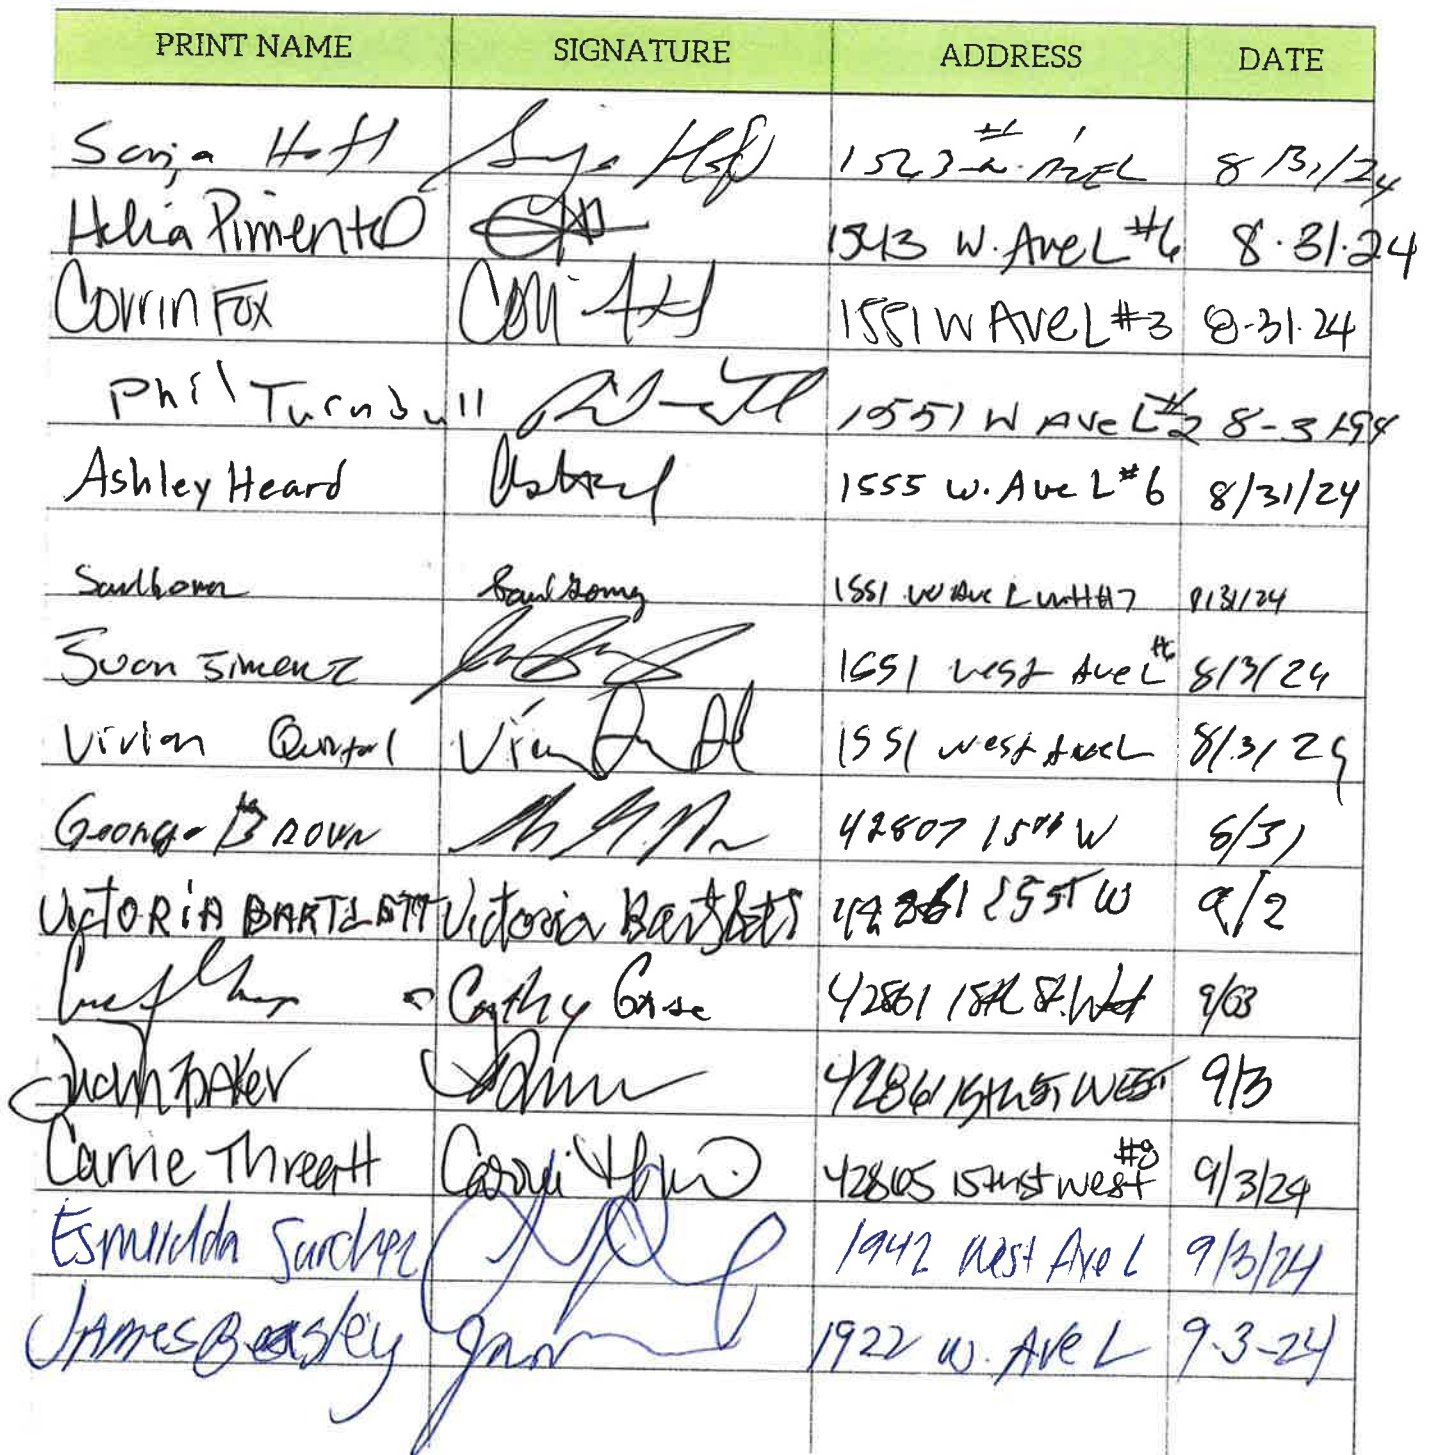 PRINT NAME SIGNATURE ADDRESS DATE
Sonja Hoff Sonja Hoff 1543 W. Ave L #1 8/31/24
Helia Pimentel 1543 W. Ave L #6 8.31.24
Corrin Fox 1551 W Ave L #3 8-31-24
Phil Turnbull 1551 W Ave L #2 8-31-24
Ashley Heard 1555 W. Ave L #6 8/31/24
Saul Gomez 1551 W Ave L unit #7 8/31/24
Juan Jimenez 1551 West Ave L #6 8/31/24
Vivian Quintal 1551 West Ave L 8/31/24
George Brown 42807 15th W 8/31
VICTORiA BARTLETT Victoria Bartlett 42861 15 ST W 9/2
Cathy 42861 15th St. West 9/03
Judith Baker 42861 15th St West 9/3
Carrie Threatt 42805 15th st west #8 9/3/24
Esmerelda Sanchez 1942 West Ave L 9/3/24
James Beasley 1922 W. Ave L 9-3-24